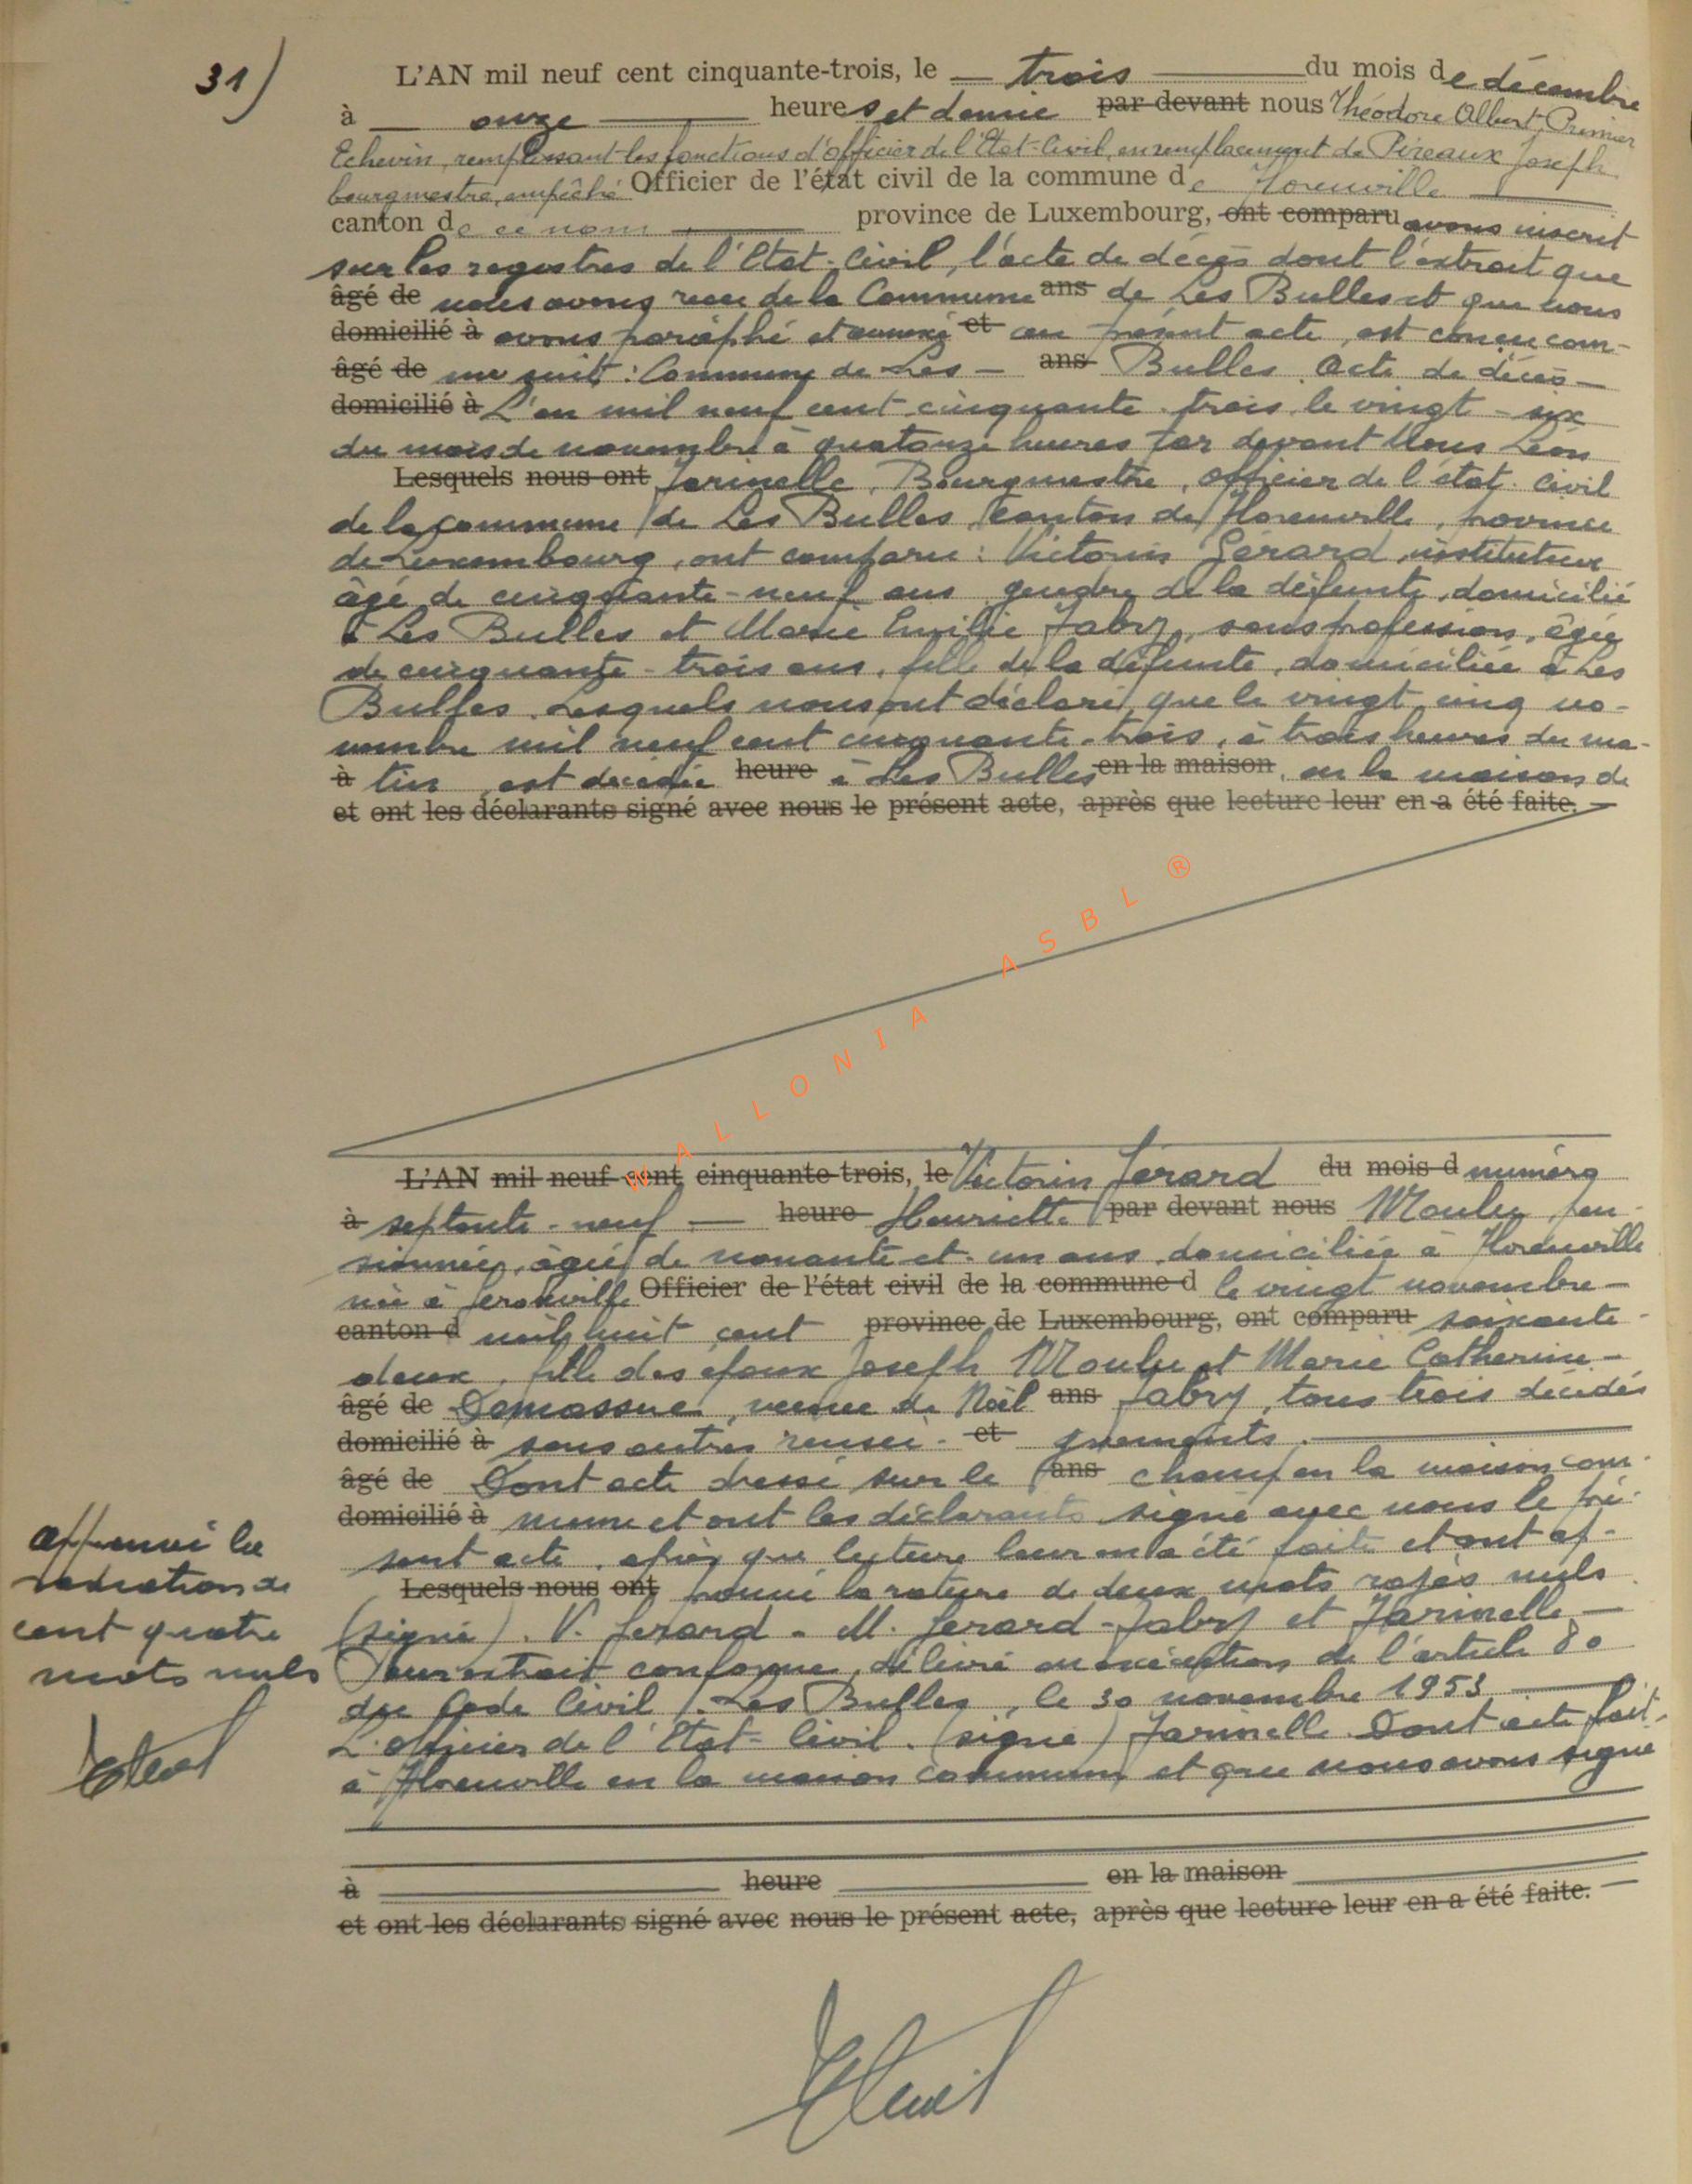 31)
L'AN mil neuf cent cinquante-trois, le — trois — du mois de décembre
à — onze — heures et demie par devant nous Théodore Albert, Premier
Echevin, remplissant les fonctions d'officier de l'Etat-Civil, en remplacement de Pireaux Joseph
bourgmestre, empêché Officier de l'état civil de la commune de Florenville
canton de ce nom — province de Luxembourg, ont comparu avons inscrit
sur les registres de l'Etat-Civil, l'acte de décès dont l'extrait que
âgé de nous avons reçu de la Commune ans de Les Bulles et que nous
domicilié à avons paraphé et annexé et au présent acte, est conçu com-
âgé de me suit : Commune de Les — ans Bulles. Acte de décès —
domicilié à L'an mil neuf cent cinquante-trois, le vingt-six
du mois de novembre à quatorze heures par devant Nous Léon
Lesquels nous ont Jarinelle, Bourgmestre, officier de l'état civil
de la commune de Les Bulles, canton de Florenville, province
de Luxembourg, ont comparu : Victorin Gérard, instituteur
âgé de cinquante-neuf ans, gendre de la défunte, domicilié
à Les Bulles et Marie Emilie Fabry, sans profession, âgée
de cinquante-trois ans, fille de la défunte, domiciliée à Les
Bulles. Lesquels nous ont déclaré que le vingt cinq no-
vembre mil neuf cent cinquante-trois, à trois heures du ma-
à tin, est décédée heure à Les Bulles en la maison, en la maison de
et ont les déclarants signé avec nous le présent acte, après que lecture leur en a été faite. —
WALLONIA ASBL ®
L'AN mil neuf cent cinquante-trois, le Victorin Gérard du mois d numéro
à septante-neuf — heure Henriette par devant nous Moulu, pen-
sionnée, âgée de nonante et un ans, domiciliée à Florenville
née à Officier de l'état civil de la commune d le vingt novembre —
canton d mil huit cent province de Luxembourg, ont comparu soixante-
deux, fille des époux Joseph Moulu et Marie Catherine —
âgé de Demassue, veuve de Noël ans Fabry, tous trois décédés
domicilié à sans autres rensei- et gnements. —
âgé de Dont acte dressé sur le ans champ en la maison com-
domicilié à mune et ont les déclarants signé avec nous le pré-
sent acte, après que lecture leur en a été faite et ont ap-
Lesquels nous ont prouvé la rature de deux mots rayés nuls
(signé). V. Gerard - M. Gerard-Fabry et Jarinelle —
Pour extrait conforme, délivré en exécution de l'article 80
du Code Civil. Les Bulles, le 30 novembre 1953 —
L'officier de l'Etat-Civil. (signé) Jarinelle. Dont acte fait,
à Florenville en la maison commune et que nous avons signé
Approuvé la
radiation de
cent quatre
mots nuls
à heure en la maison
et ont les déclarants signé avec nous le présent acte, après que lecture leur en a été faite. —